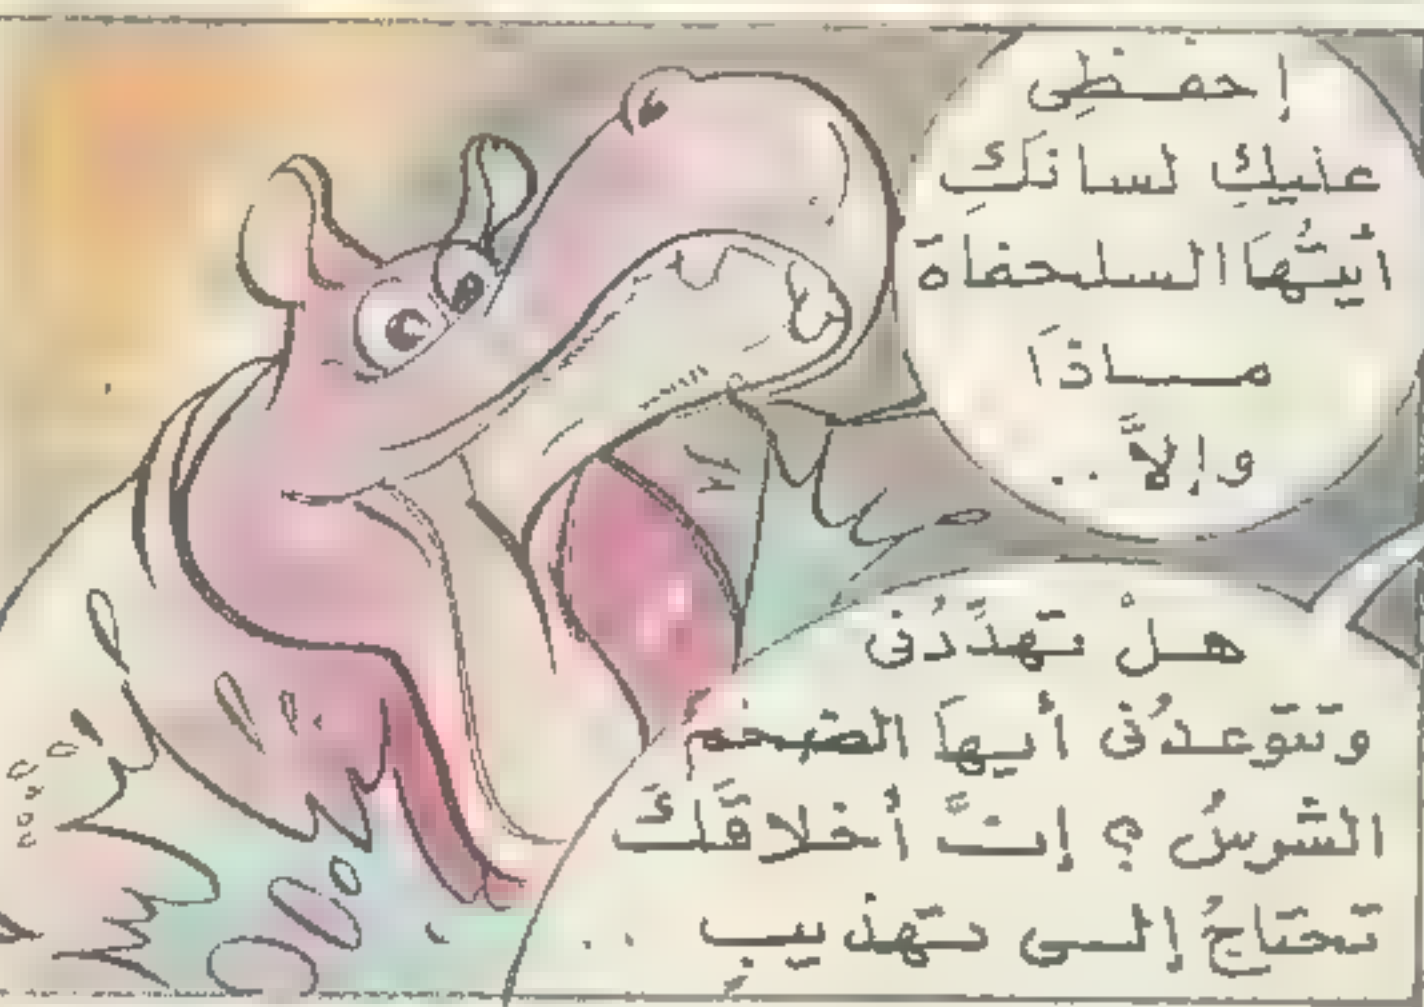 إحفظِى
عليكِ لسانَكِ
أيتُّهَا السلحفاة
ماذَا
وإلاَّ ..
هلْ تهدِّدُنى
وتتوّعدُنى أيهَا الضخمُ
الشرسُ ؟ إنَّ أخلاقَكَ
تحتاجُ إلى تهذيبٍ ..